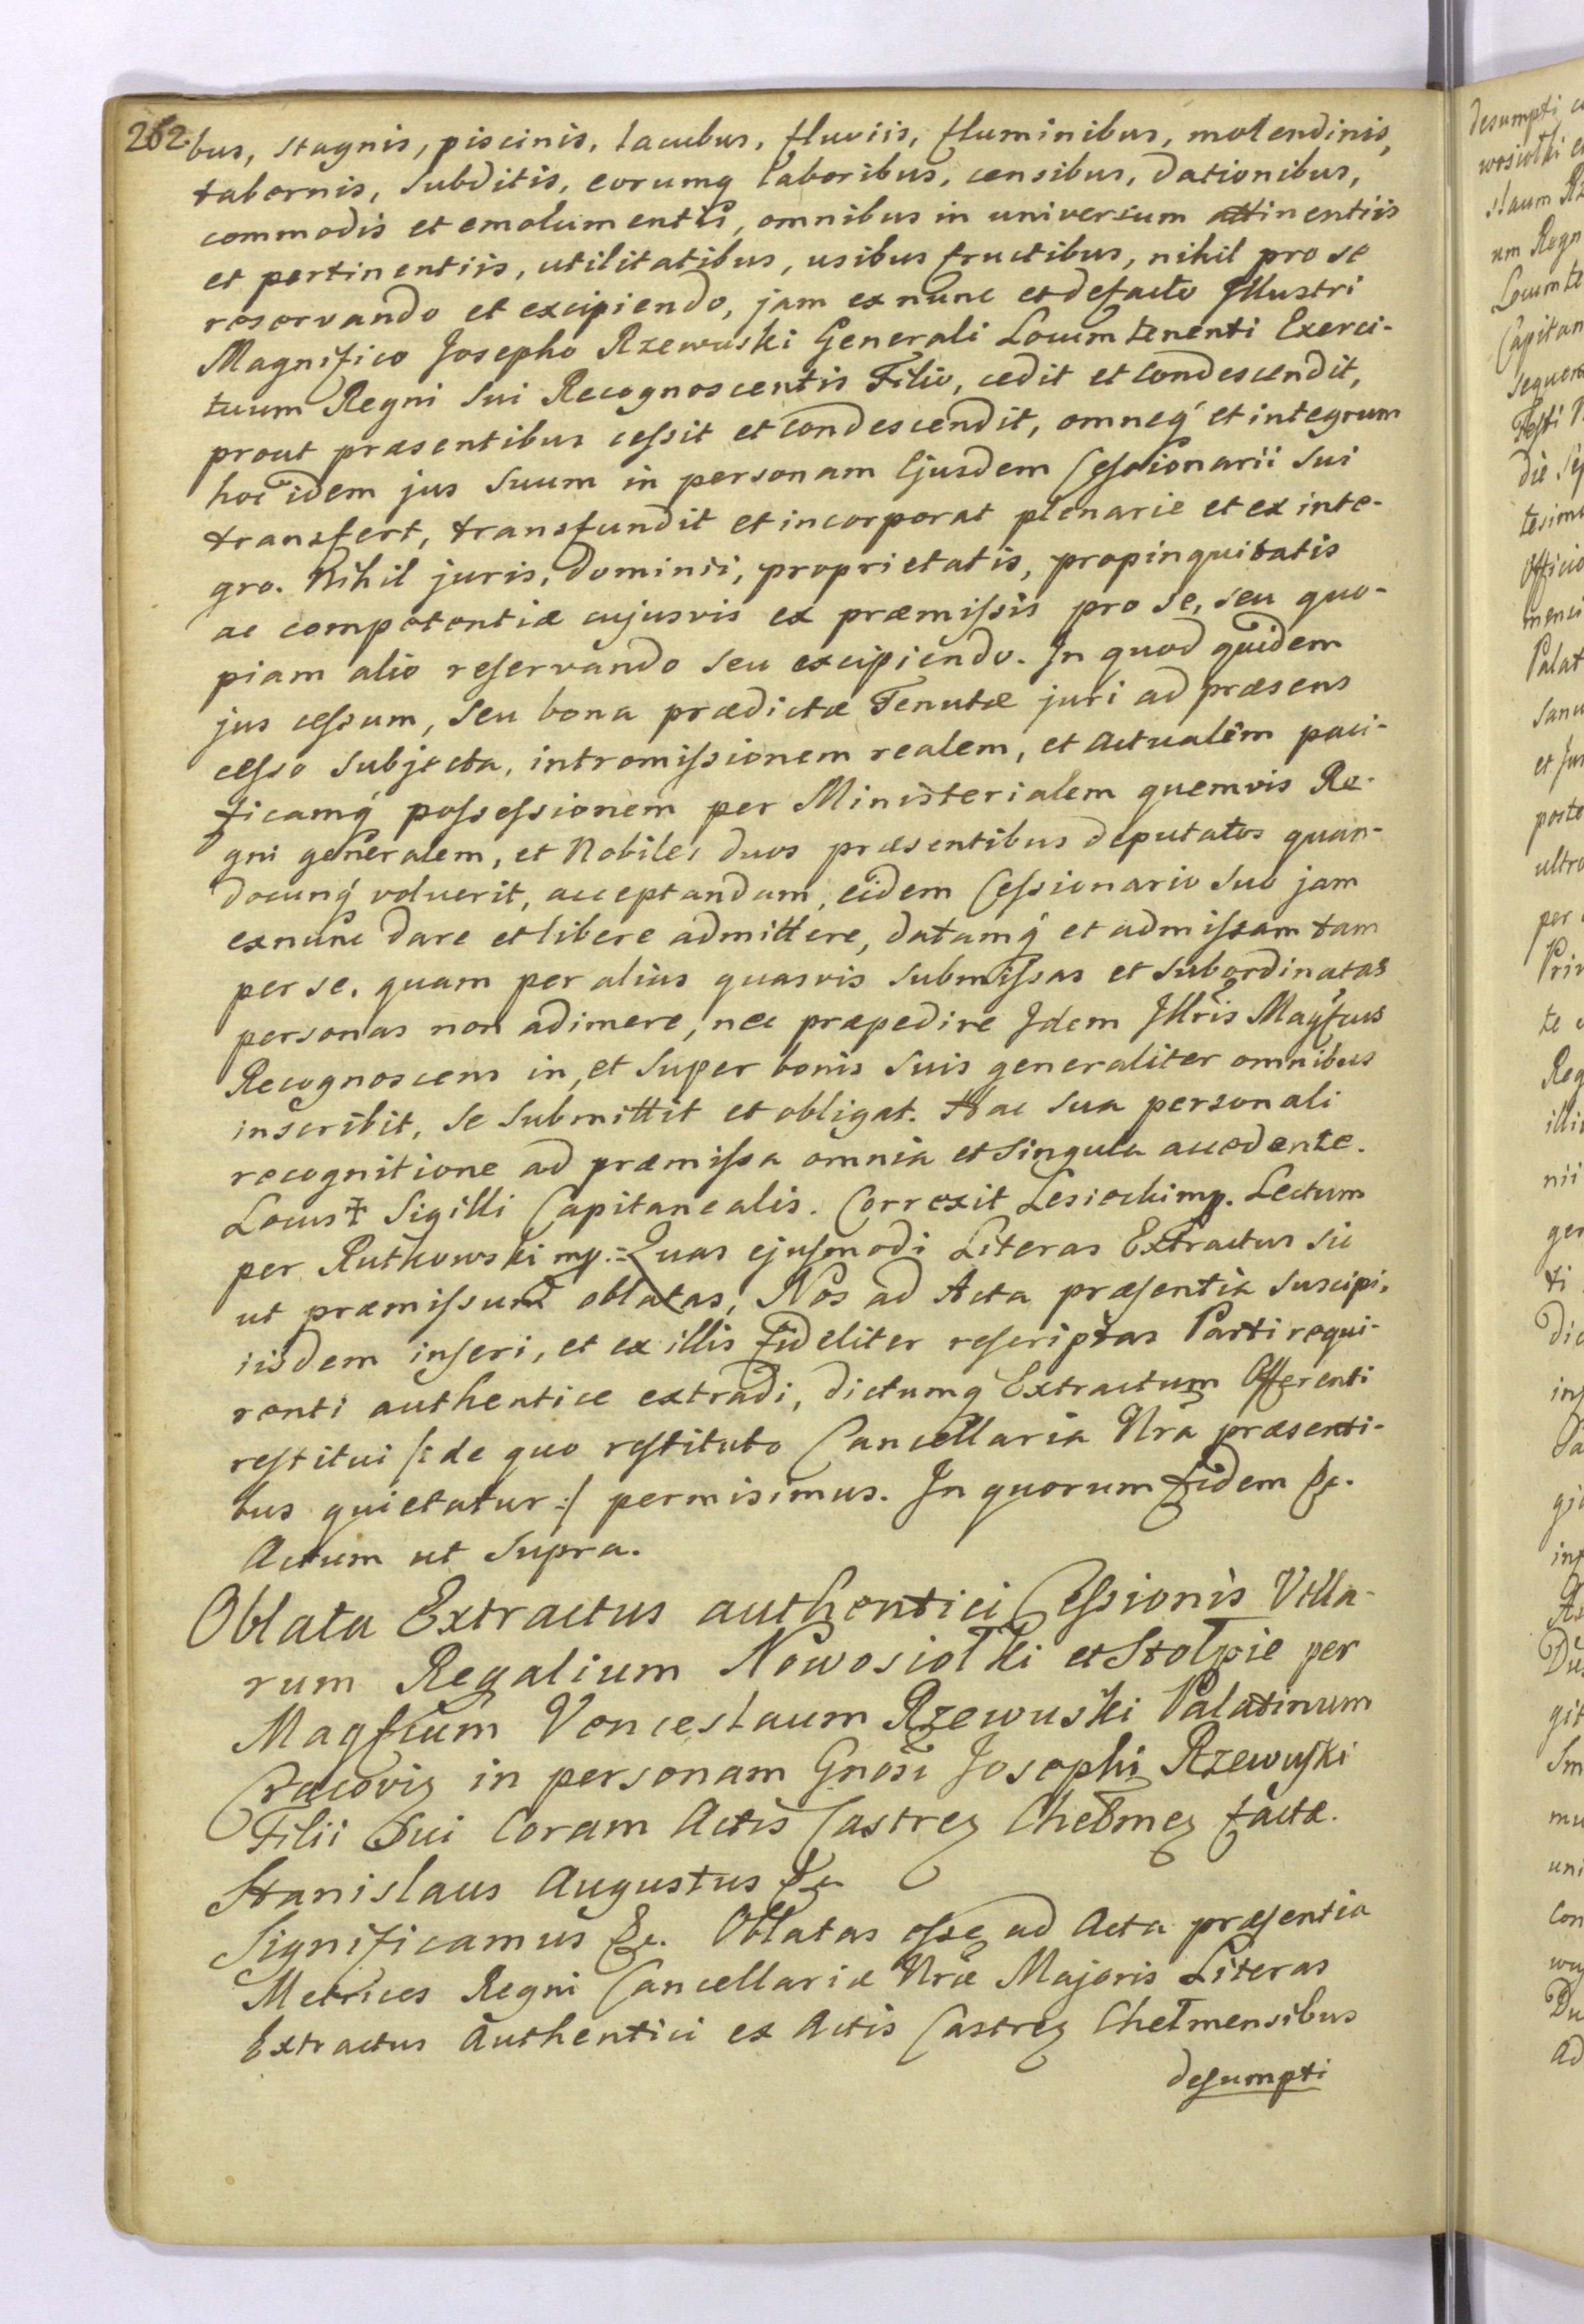 262.
bus, stagnis, piscinis, lacubus, fluviis, fluminibus, molendinis,
tabernis, subditis, eorumq laboribus, censibus, dationibus,
commodis et emolumentis, omnibus in universum attinentiis
et pertinentiis, utilitatibus, usibus fructibus, nihil pro se
reservando et excipiendo, jam exnunc et defacto Illustri
Magnifico Josepho Rzewuski Generali Locumtenenti Exerci-
tuum Regni sui Recognoscentis Filio, cedit et condescendit,
prout præsentibus cessit et condescendit, omneq́ et integrum
hoc idem jus suum in personam Ejusdem Cessionarii sui
transfert, transfundit et incorporat plenarie et ex inte-
gro. Nihil juris, dominii, proprietatis, propinquitatis
ac competentiæ cujusvis ex præmissis pro se, seu quo-
piam alio reservando seu excipiendo. In quod quidem
jus cessum, seu bona prædictæ Tenutæ juri ad præsens
cesso subjecta, intromissionem realem, et actualem paci-
ficamq́ possessionem per Ministerialem quemvis Re-
gni generalem, et Nobiles duos præsentibus deputatos quan-
docunq́ voluerit, acceptandum, eidem Cessionario suo jam
exnunc dare et libere admittere, datamq́ et admissam tam
per se, quam per alias quasvis submissas et subordinatas
personas non adimere, nec præpedire Idem Illris Magfcus
Recognoscens in, et super bonis suis generaliter omnibus
inscribit, se submittit et obligat. Hac sua personali
recognitione ad præmissa omnia et singula accedente.
Locus ‡ Sigilli Capitanealis. Correxit Lesiecki mp. Lectum
per Rutkowski mp. Quas ejusmodi Literas Extractus sic
ut præmissum oblatas, Nos ad Acta præsentia suscipi,
iisdem inseri, et ex illis fideliter rescriptas Parti requi-
renti authentice extradi, dictumq Extractum Offerenti
restitui /: de quo restituto Cancellaria Nra præsenti-
bus quietatur :/ permisimus. In quorum fidem &c.
Actum ut supra.
Oblata Extractus authentici Cessionis Villa-
rum Regalium Nowosiołki et Stołpie per
Magfcum Venceslaum Rzewuski Palatinum
Cracovię in personam Gnosi Josephi Rzewuski
Filii Sui Coram Actis Castreq Chełmeq factæ.
Stanislaus Augustus &c.
Significamus &c. Oblatas esse ad Acta præsentia
Metrices Regni Cancellariæ Nræ Majoris Literas
Extractus Authentici ex Actis Castreq Chełmensibus
desumpti